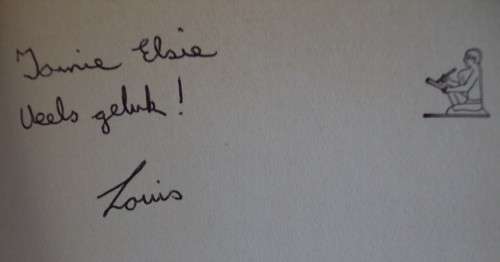 Tannie Elsie
Veels geluk!
Louis